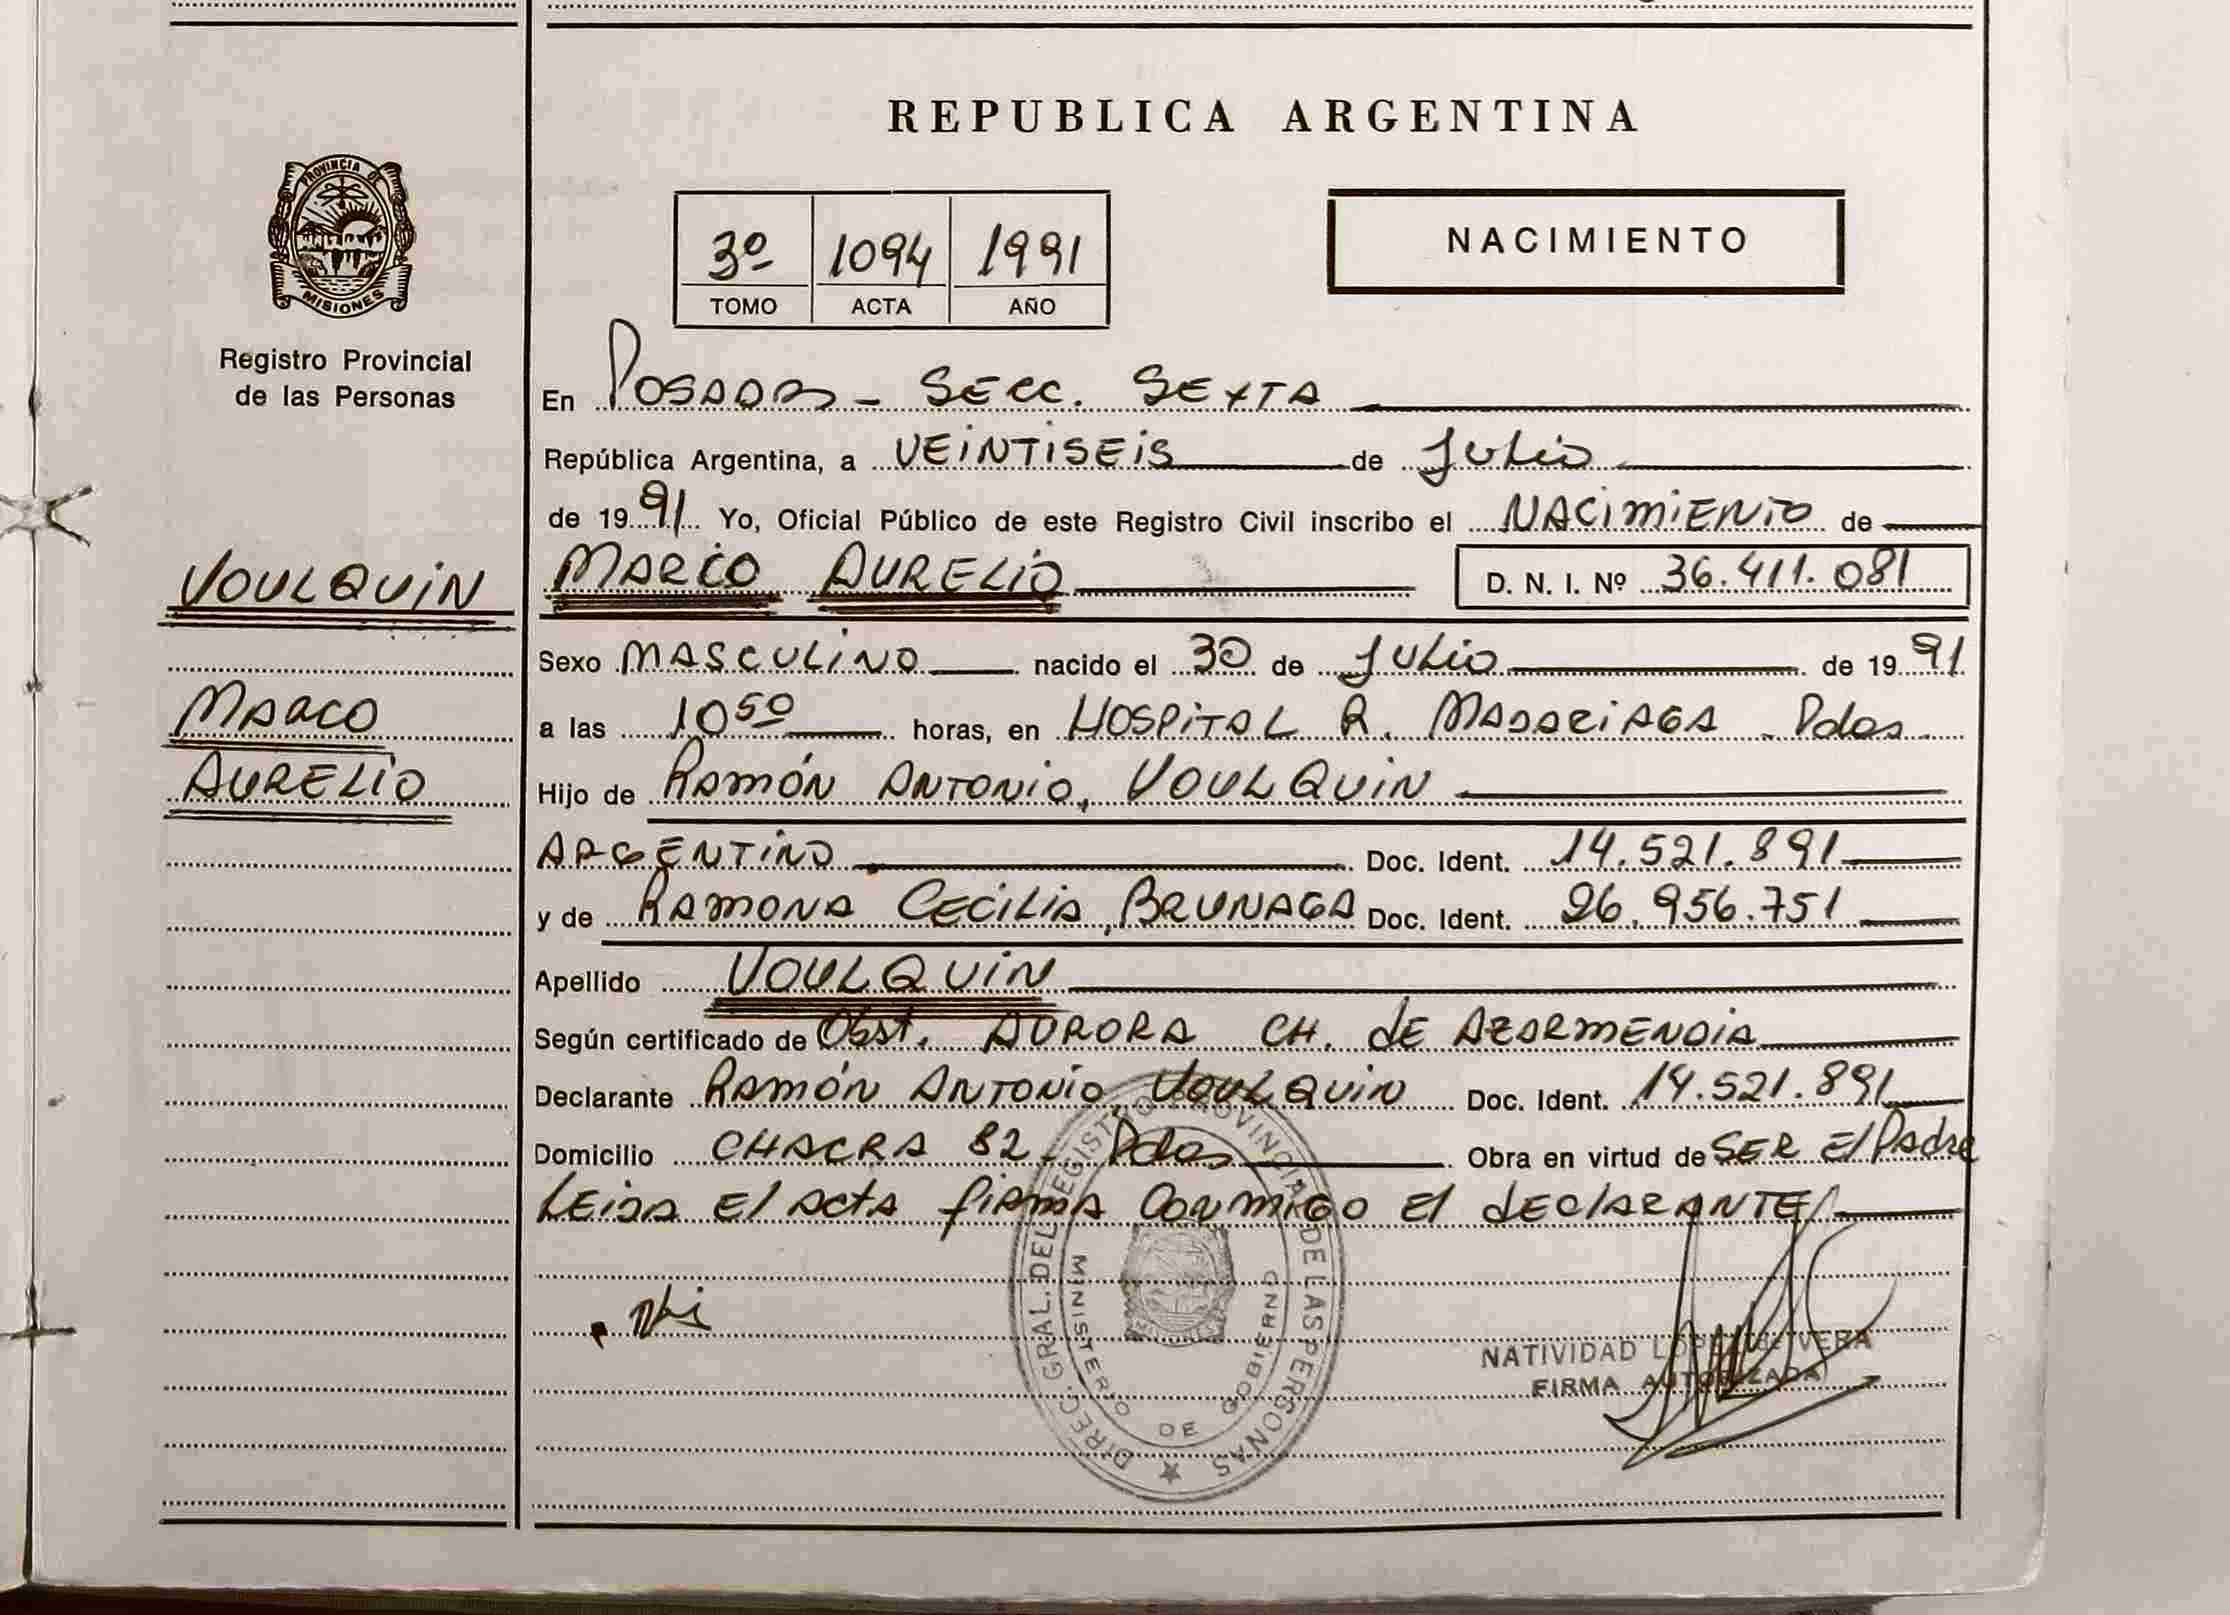 REPUBLICA ARGENTINA
PROVINCIA DE
MISIONES
Registro Provincial
de las Personas
3º 1094 1991
TOMO ACTA AÑO
NACIMIENTO
En Posadas - Secc. Sexta
República Argentina, a VEINTISEIS de Julio
de 1991 Yo, Oficial Público de este Registro Civil inscribo el NACIMIENTO de
VOULQUIN
MARCO AURELIO D. N. I. Nº 36.411.081
Sexo MASCULINO nacido el 30 de Julio de 1991
MARCO
a las 10⁵⁰ horas, en HOSPITAL R. MADARIAGA - Pdas.
AURELIO
Hijo de RAMÓN ANTONIO, VOULQUIN
ARGENTINO Doc. Ident. 14.521.891
y de RAMONA CECILIA, BRUNAGA Doc. Ident. 26.956.751
Apellido VOULQUIN
Según certificado de Obst. AURORA CH. de AZARMENDIA
Declarante RAMÓN ANTONIO, VOULQUIN Doc. Ident. 14.521.891
Domicilio CHACRA 82 - Pdas Obra en virtud de SER El Padre
LEIDA El Acta firma Conmigo El declarante
DIREC. GRAL. DEL REGISTRO PROVINCIAL DE LAS PERSONAS
MINISTERIO DE GOBIERNO
NATIVIDAD LOPEZ VERA
FIRMA AUTORIZADA